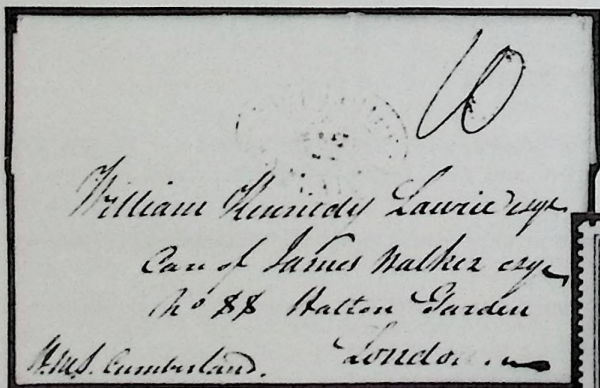 10
William Kennedy Lawrie esqr
Care of James Walker esqr
No 88 Hatton Garden
London
H.M.S. Cumberland.